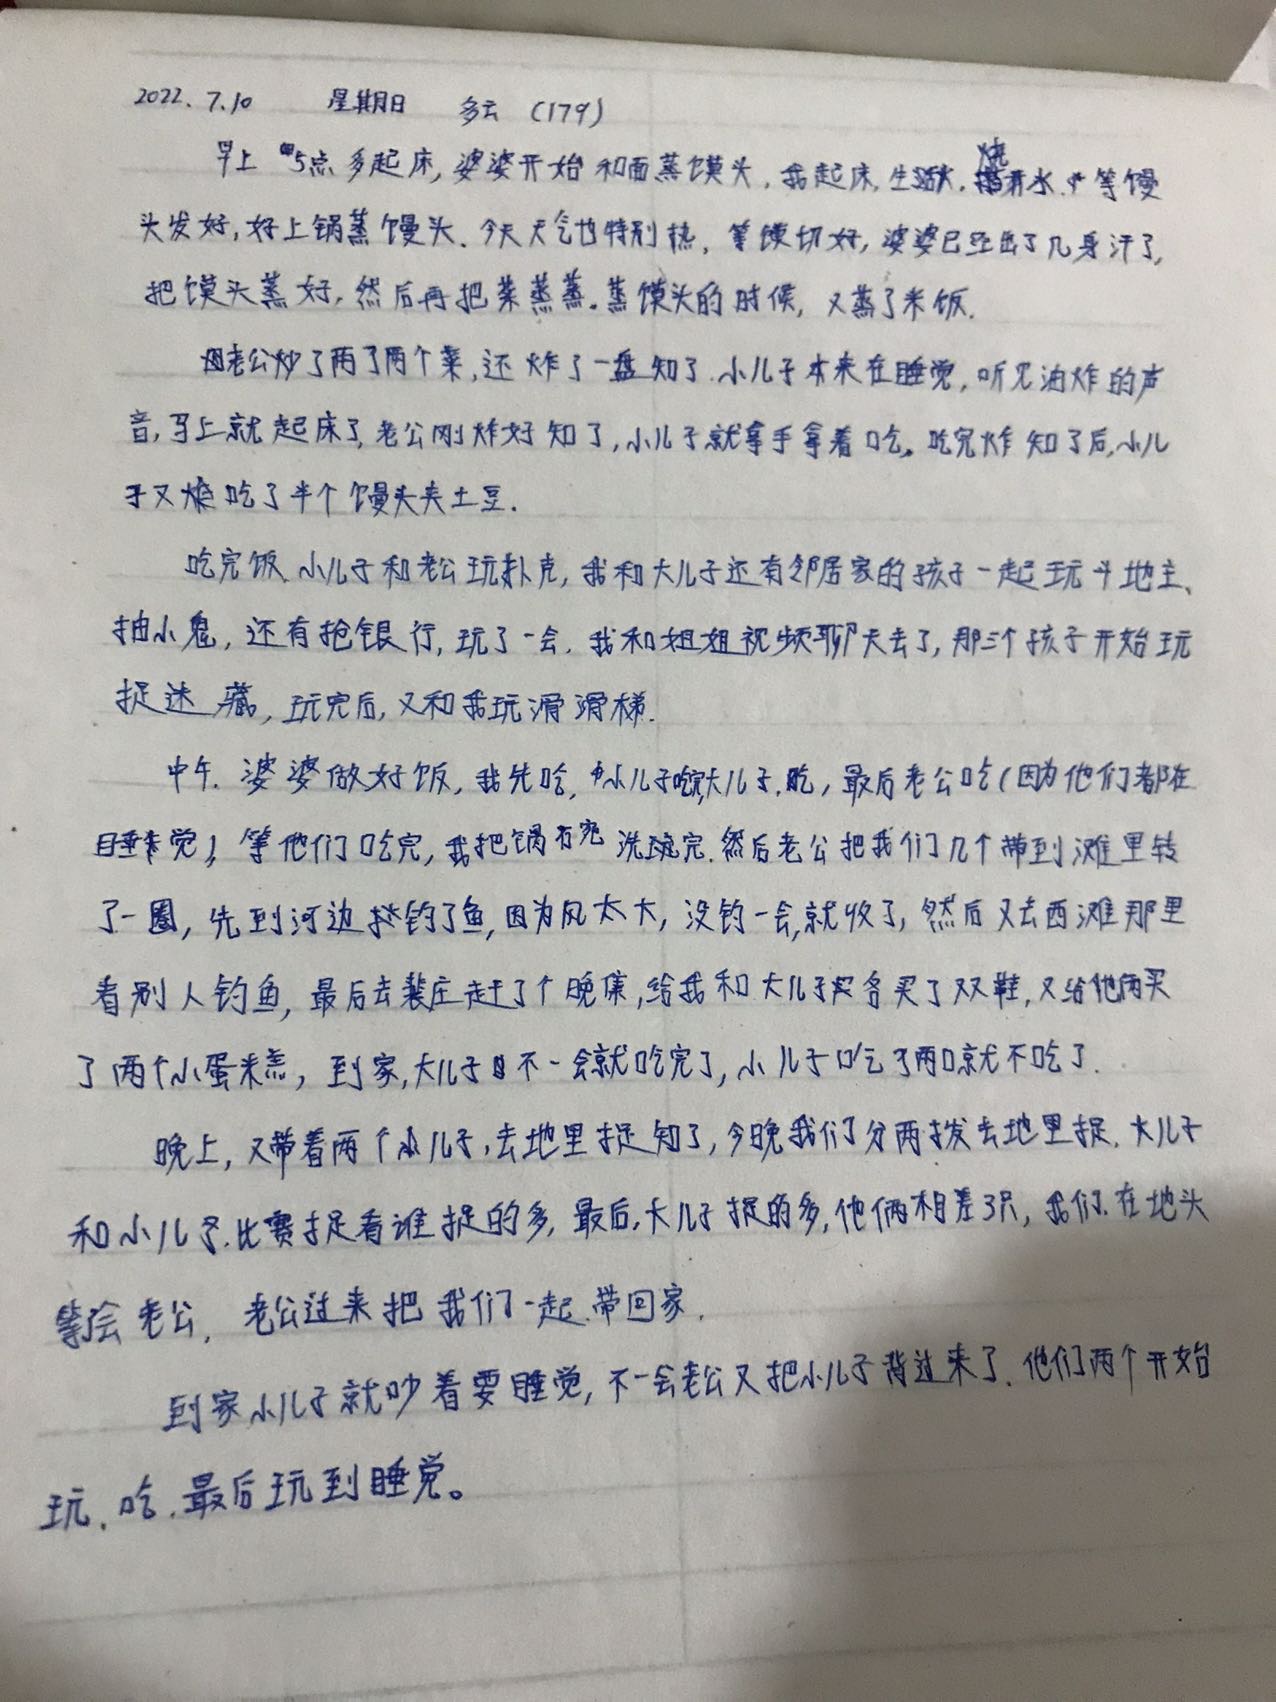 2022.7.10 星期日 多云 (179)
早上5点多起床,婆婆开始和面蒸馍头,我起床,生活火,烧着水,等馒
头发好,好上锅蒸馒头.今天天气也特别热,等馍切好,婆婆已经出了几身汗了,
把馍头蒸好,然后再把菜蒸蒸.蒸馍头的时候,又蒸了米饭.
老公炒了两了两个菜,还炸了一盘知了.小儿子本来在睡觉,听见油炸的声
音,马上就起床了,老公刚炸好知了,小儿子就拿手拿着吃。吃完炸知了后,小儿
子又吃了半个馒头夹土豆.
吃完饭,小儿子和老公玩扑克,我和大儿子还有邻居家的孩子一起玩斗地主、
抽小鬼,还有抢银行,玩了一会.我和姐姐视频聊天去了,那三个孩子开始玩
捉迷藏,玩完后,又和我玩滑滑梯.
中午.婆婆做好饭,我先吃,小儿子吃完,大儿子.吃,最后老公吃(因为他们都在
睡觉),等他们吃完,我把锅石完洗琬完.然后老公把我们几个带到滩里转
了一圈,先到河边钓了鱼,因为风太大,没钓一会,就收了,然后又去西滩那里
看别人钓鱼,最后去裴庄赶了个晚集,给我和大儿子各买了双鞋,又给他俩买
了两个小蛋米羔,到家,大儿子不一会就吃完了,小儿子吃了两口就不吃了.
晚上,又带着两个小儿子,去地里捉知了,今晚我们分两拨去地里捉.大儿子
和小儿子.比赛捉看谁捉的多,最后,大儿子捉的多,他俩相差3只,我们.在地头
等会老公,老公过来把我们一起.带回家.
到家小儿子就吵着要睡觉,不一会老公又把小儿子背过来了.他们两个开始
玩、吃.最后玩到睡觉。